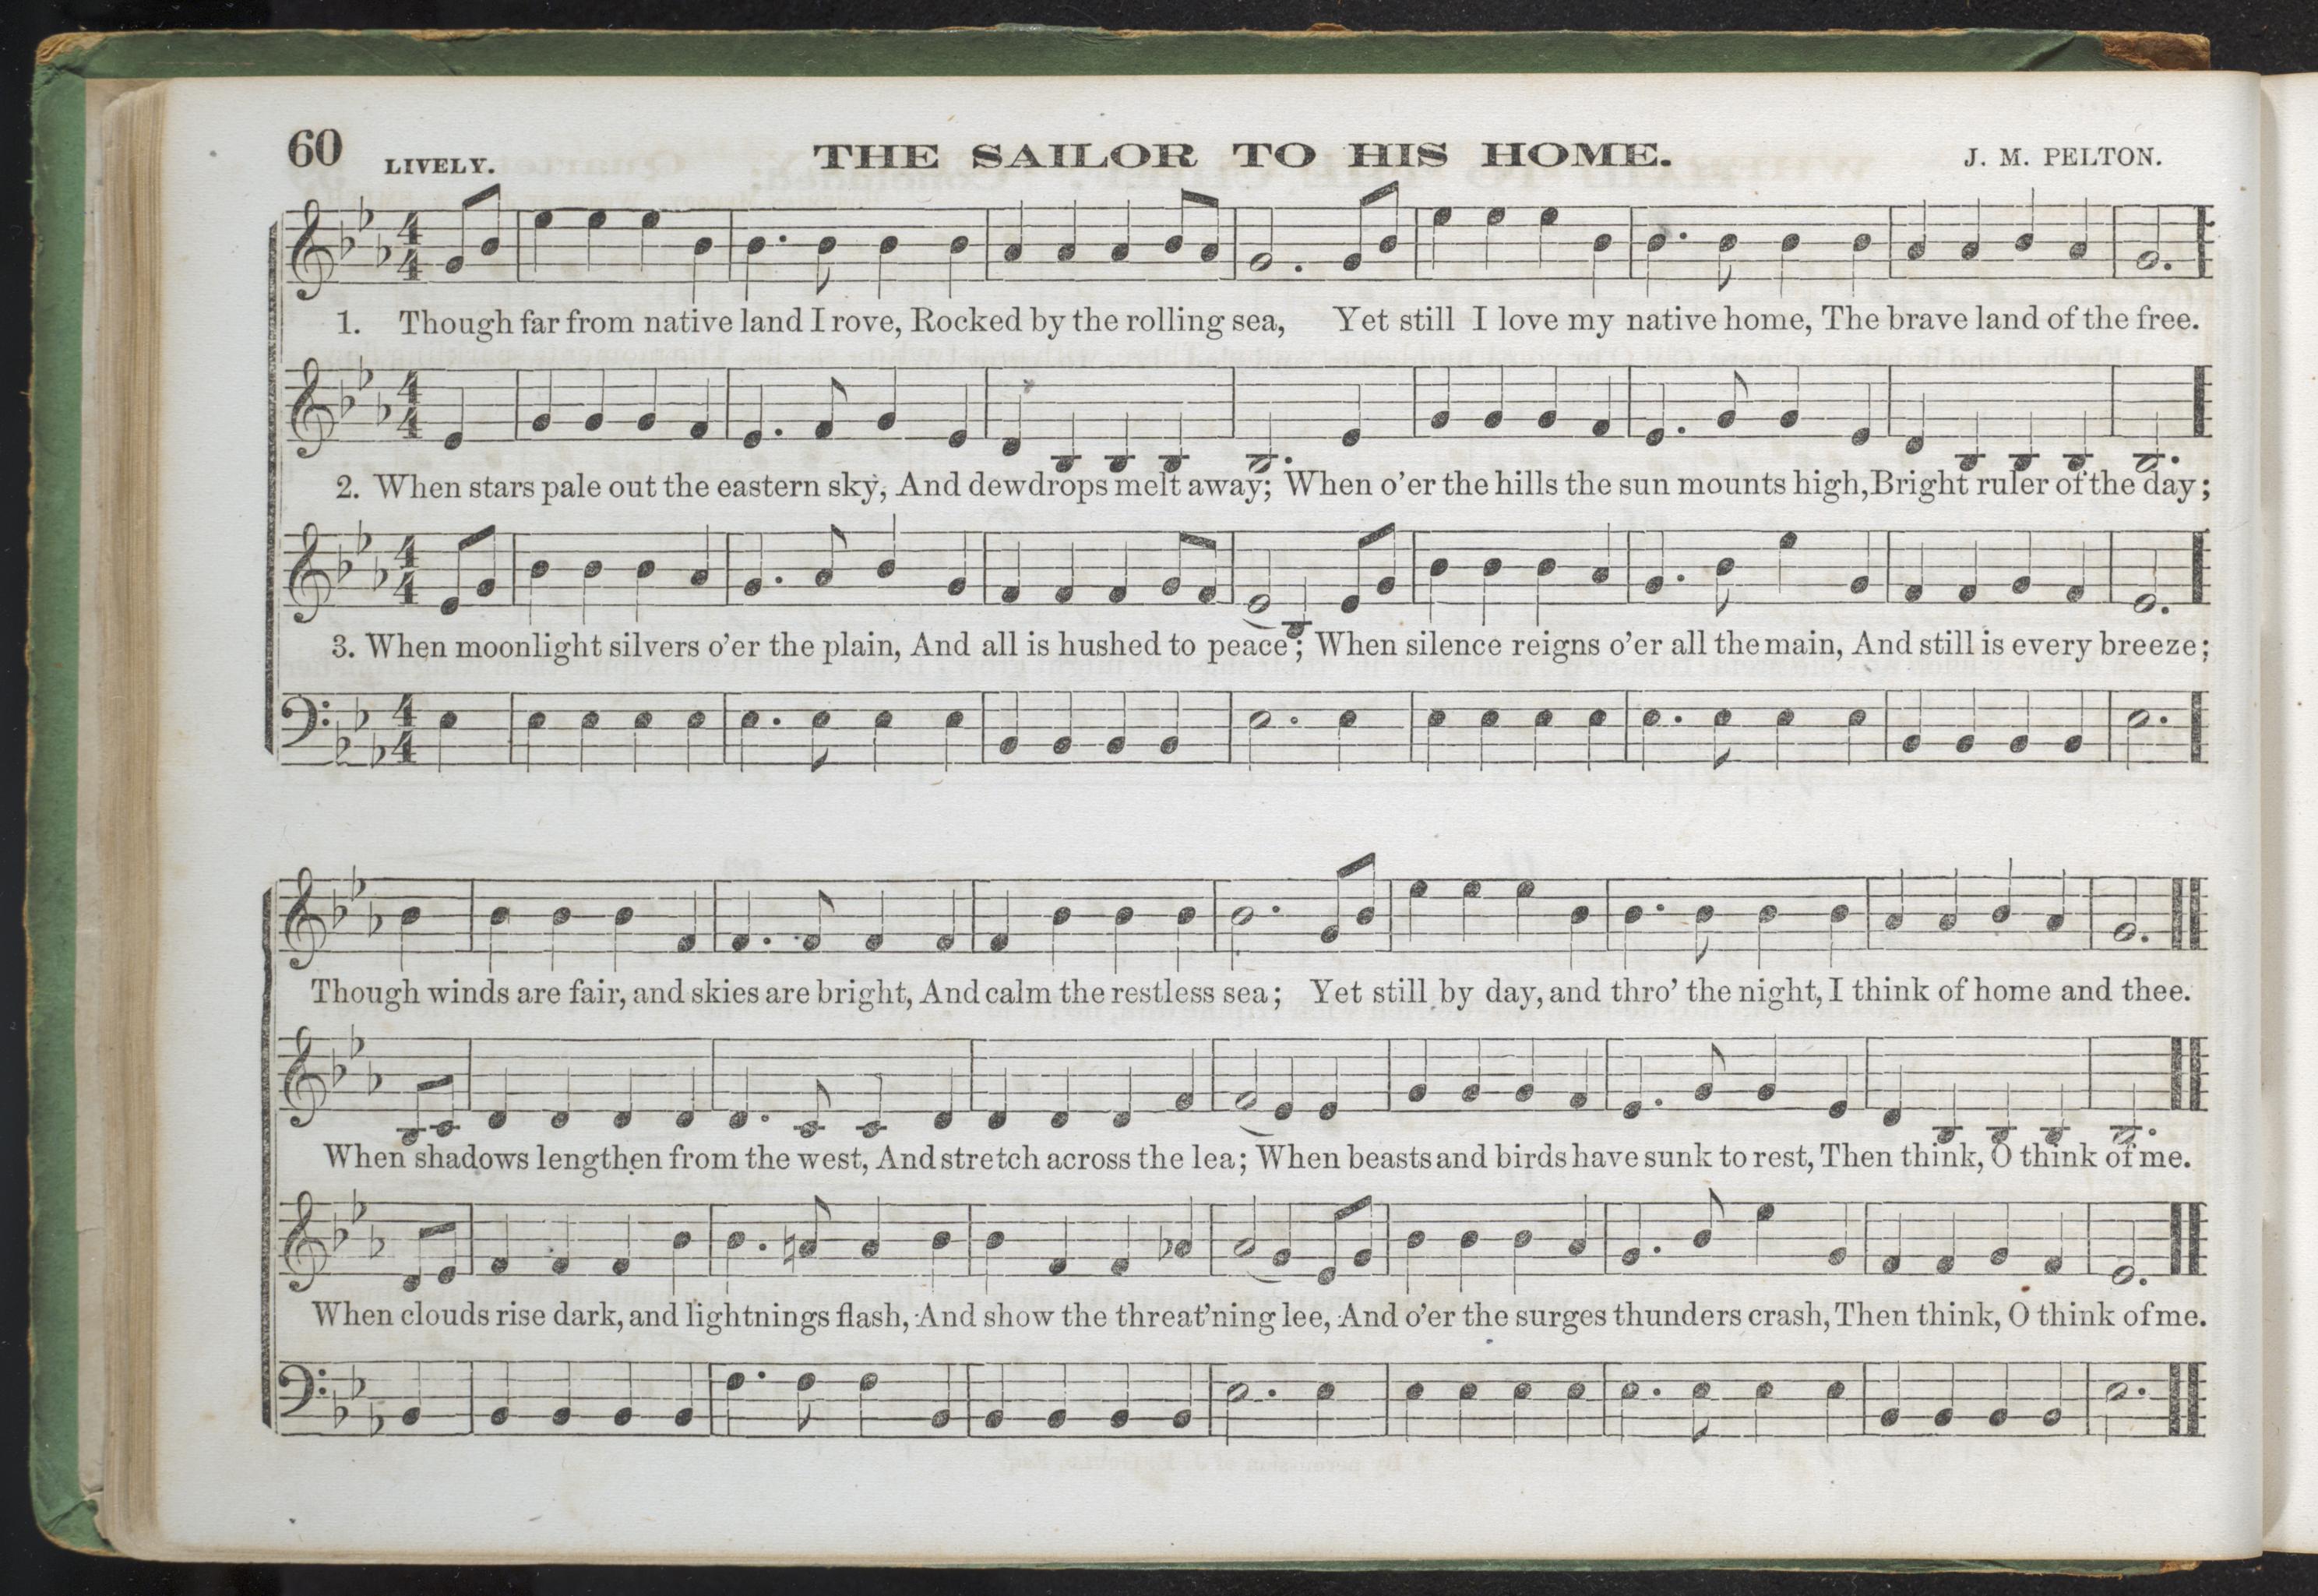 60
LIVELY.
THE SAILOR TO HIS HOME.
J. M. PELTON.
1. Though far from native land I rove, Rocked by the rolling sea, Yet still I love my native home, The brave land of the free.
2. When stars pale out the eastern sky, And dewdrops melt away; When o'er the hills the sun mounts high, Bright ruler of the day;
3. When moonlight silvers o'er the plain, And all is hushed to peace; When silence reigns o'er all the main, And still is every breeze;
Though winds are fair, and skies are bright, And calm the restless sea; Yet still by day, and thro' the night, I think of home and thee.
When shadows lengthen from the west, And stretch across the lea; When beasts and birds have sunk to rest, Then think, O think of me.
When clouds rise dark, and lightnings flash, And show the threat'ning lee, And o'er the surges thunders crash, Then think, O think of me.